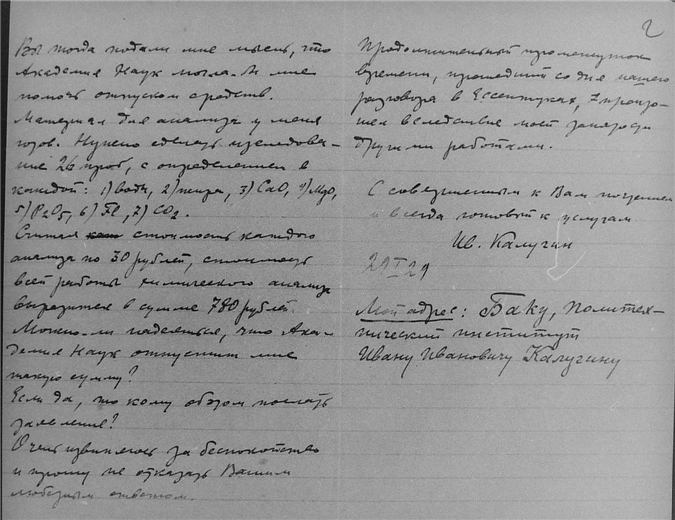 Вы тогда подали мне мысль, что
Академия Наук могла-бы мне
помочь отпуском средств.
Материал для анализа у меня
готов. Нужно сделать исследова-
ние 26 проб, с определением в
каждой: 1) воды, 2) жира, 3) CaO, 4) MgO,
5) P2O5, 6) Fl, 7) CO2.
Считая стоимость каждого
анализа по 30 рублей, стоимость
всей работы химического анализа
выразится в сумме 780 рублей.
Можно-ли надеяться, что Ака-
демия Наук отпустит мне
такую сумму?
Если да, то кому обязан послать
заявление?
Очень извиняюсь за беспокойство
и прошу не отказать Вашим
любезным ответом.
2
Продолжительный промежуток
времени, прошедший со дня нашего
разговора в Ессентуках, произо-
шел вследствие моей
другими работами.
С совершенным к Вам почтением
и всегда готовый к услугам
Ив. Калугин
29 I 29
Мой адрес: Баку, Политех-
нический институт
Ивану Ивановичу Калугину